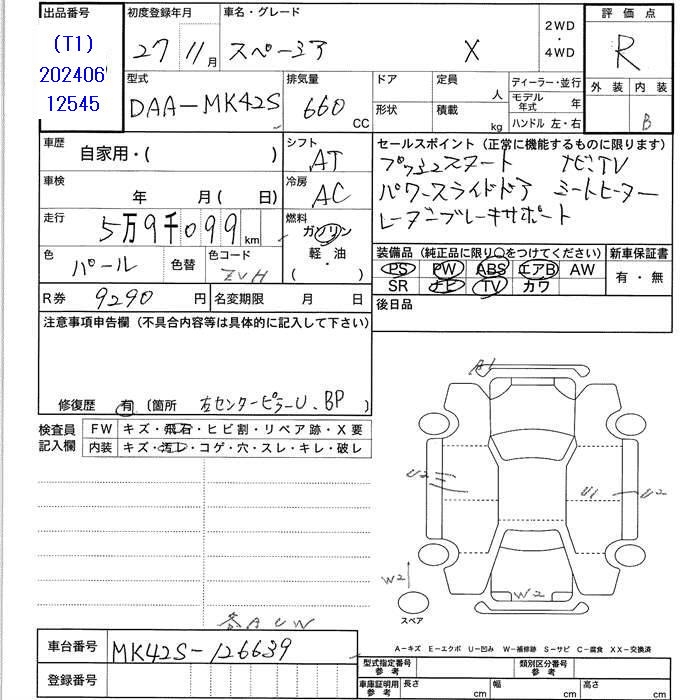 出品番号 初度登録年月 車名・グレード 2WD・4WD 評価点
(T1) 27 11月 スペーシア X R
202406
12545
型式 排気量 ドア 定員 人 ディーラー・並行 外装 内装
DAA-MK42S 660 CC 形状 積載 kg モデル年式 年 B
ハンドル 左・右
車歴 自家用・( ) シフト AT セールスポイント (正常に機能するものに限ります)
プッシュスタート ナビ、TV
車検 年 月(日) 冷房 AC パワースライドドア シートヒーター
走行 5万9千099km 燃料 ガソリン レーダーブレーキサポート
軽・油
・( )
色 パール 色替 色コード ZVH 装備品 (純正品に限り○をつけてください) 新車保証書
PS PW ABS エアB AW 有・無
R券 9290 円 名変期限 月 日 SR ナビ TV カワ
後日品
注意事項申告欄 (不具合内容等は具体的に記入して下さい)
修復歴 有 (箇所 左センターピラーU、BP
検査員記入欄 FW キズ・飛石・ヒビ割・リペア跡・X要
内装 キズ・汚レ・コゲ・穴・スレ・キレ・破レ
A1
U2 U1 U2
W2 W2
スペア
各AUW
A-キズ E-エクボ U-凹み W-補修跡 S-サビ C-腐食 XX-交換済
車台番号 MK42S-126639
登録番号
型式指定番号 参考 類別区分番号 参考
車庫証明用 参考 長さ cm 幅 cm 高さ cm